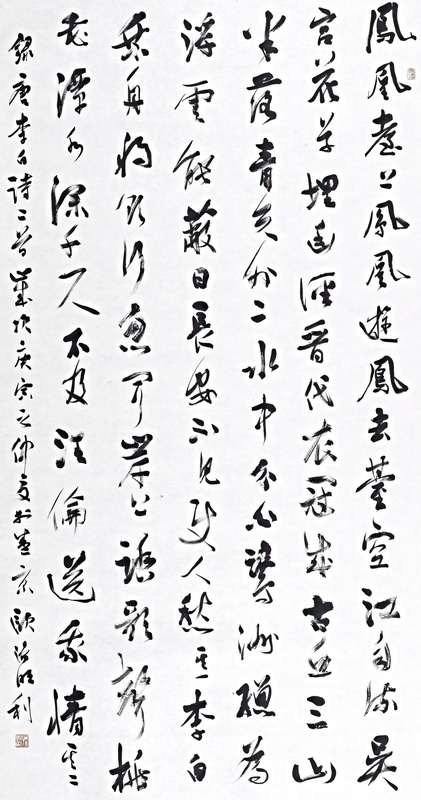 鳳凰臺上鳳凰遊鳳去臺空江自流吳
宮花草埋幽徑晉代衣冠成古丘三山
半落青天外二水中分白鷺洲總為
浮雲能蔽日長安不見使人愁其一李白
乘舟將欲行忽聞岸上踏歌聲桃
花潭水深千尺不及汪倫送我情其二
錄唐李白詩二首歲次庚寅之仲夏於燕京歐陽利